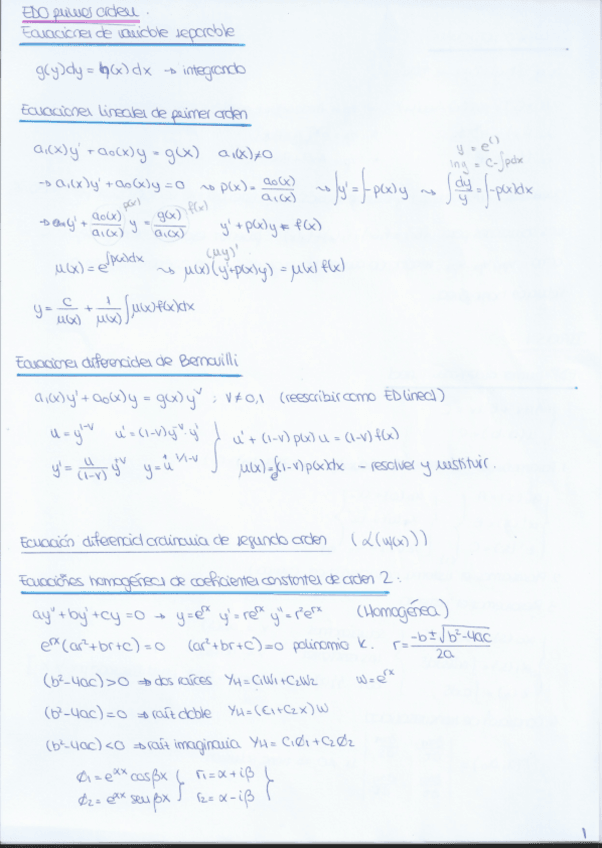 EDO primer orden.
Ecuaciones de variable separable
g(y)dy = h(x)dx → integrando
Ecuaciones lineales de primer orden
a₁(x)y' + a₀(x)y = g(x)   a₁(x)≠0
y = e^()
ln y = C-∫pdx
→ a₁(x)y' + a₀(x)y = 0 ⇝ p(x) = a₀(x)/a₁(x) ⇝ ∫y' = ∫-p(x)y ⇝ ∫dy/y = ∫-p(x)dx
→ y' + a₀(x)/a₁(x) y = g(x)/a₁(x)   y' + p(x)y = f(x)
p(x)   f(x)
(μy)'
μ(x) = e^∫p(x)dx ⇝ μ(x)(y'+p(x)y) = μ(x)f(x)
y = C/μ(x) + 1/μ(x) ∫μ(x)f(x)dx
Ecuaciones diferenciales de Bernouilli
a₁(x)y' + a₀(x)y = g(x)y^v : v≠0,1 (reescribir como ED lineal)
u = y^1-v   u' = (1-v)y^-v y' } u' + (1-v)p(x)u = (1-v)f(x)
y' = u/(1-v) y^v   y = u^1/1-v   μ(x) = e^∫(1-v)p(x)dx - resolver y sustituir.
Ecuación diferencial ordinaria de segundo orden (α(y(x)))
Ecuaciones homogéneas de coeficientes constantes de orden 2:
ay''+by'+cy=0 → y=e^rx y'=re^rx y''=r²e^rx (Homogénea)
e^rx(ar²+br+c)=0 (ar²+br+c)=0 polinomio k. r = -b±√b²-4ac/2a
(b²-4ac)>0 ⇒ dos raíces Y_H = C₁W₁+C₂W₂   w=e^rx
(b²-4ac)=0 ⇒ raíz doble Y_H = (C₁+C₂x)W
(b²-4ac)<0 ⇒ raíz imaginaria Y_H = C₁Ø₁+C₂Ø₂
Ø₁ = e^αx cosβx } r₁ = α+iβ }
Ø₂ = e^αx senβx } r₂ = α-iβ }
1